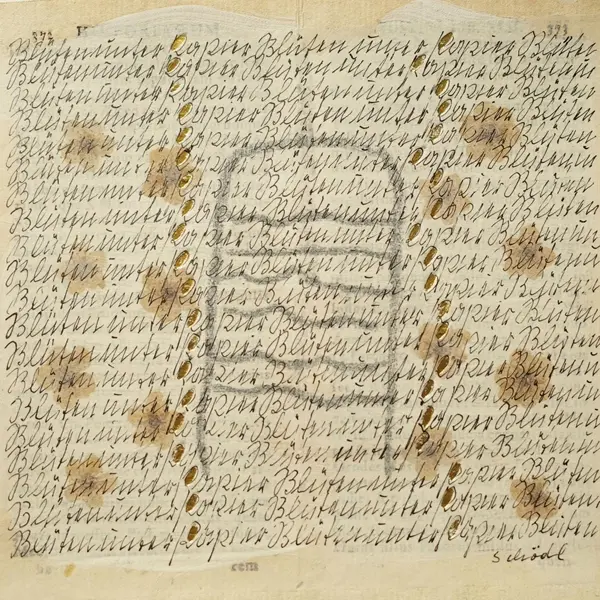 373 373
Blüten unter Papier Blüten unter Papier Blüten
Blüten unter Papier Blüten unter Papier Blüten un
Blüten unter Papier Blüten unter Papier Blüten
Blüten unter Papier Blüten unter Papier Blüten
Blüten unter Papier Blüten unter Papier Blüten
Blüten unter Papier Blüten unter Papier Blüten un
Blüten unter Papier Blüten unter Papier Blüten
Blüten unter Papier Blüten unter Papier Blüten
Blüten unter Papier Blüten unter Papier Blüten
Blüten unter Papier Blüten unter Papier Blüten
Blüten unter Papier Blüten unter Papier Blüten
Blüten unter Papier Blüten unter Papier Blüten
Blüten unter Papier Blüten unter Papier Blüten
Blüten unter Papier Blüten unter Papier Blüten
Blüten unter Papier Blüten unter Papier Blüten
Blüten unter Papier Blüten unter Papier Blüten
Blüten unter Papier Blüten unter Papier Blüten
Blüten unter Papier Blüten unter Papier Blüten
Blüten unter Papier Blüten unter Papier Blüten
Blüten unter Papier Blüten unter Papier Blüten
Schödl
rem